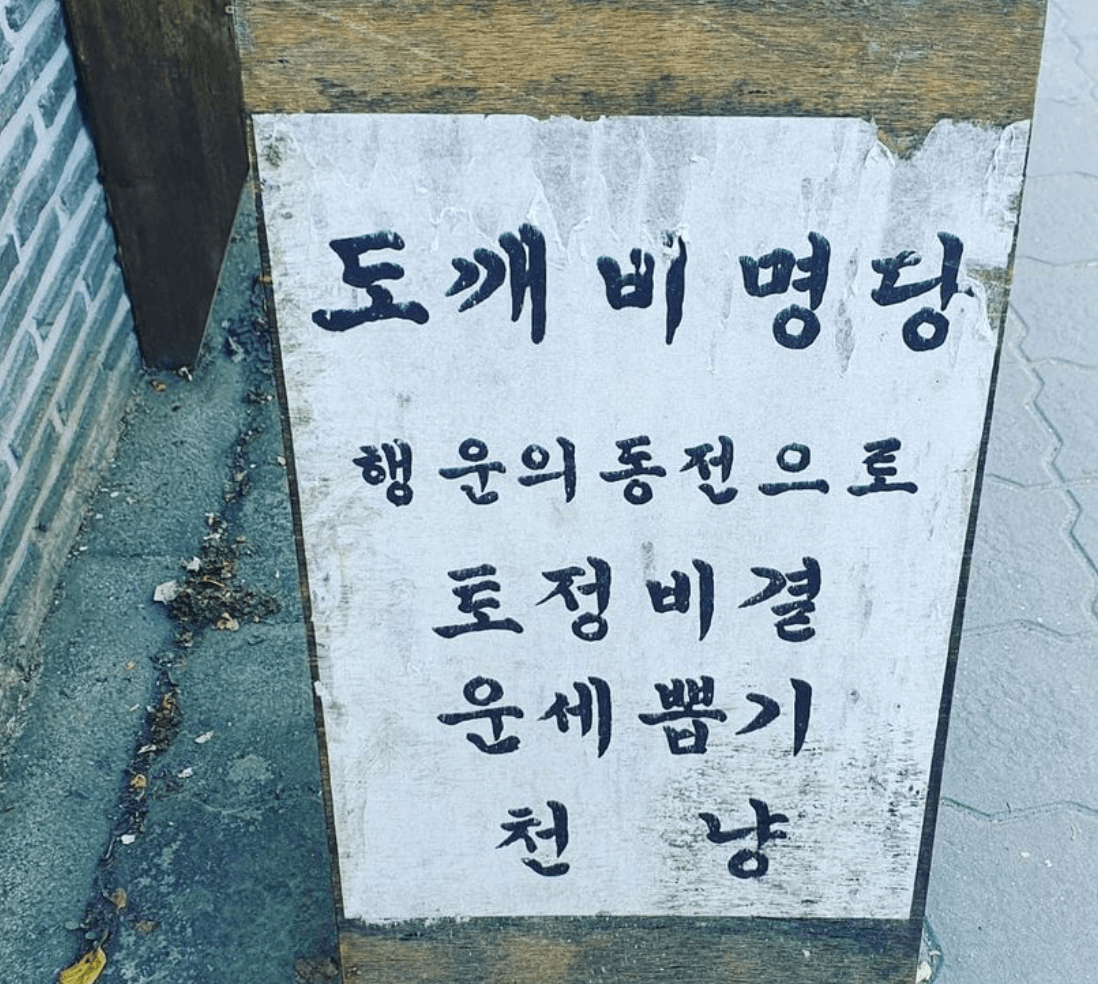 도깨비 명당
행운의 동전으로
토정비결
운세뽑기
천 냥